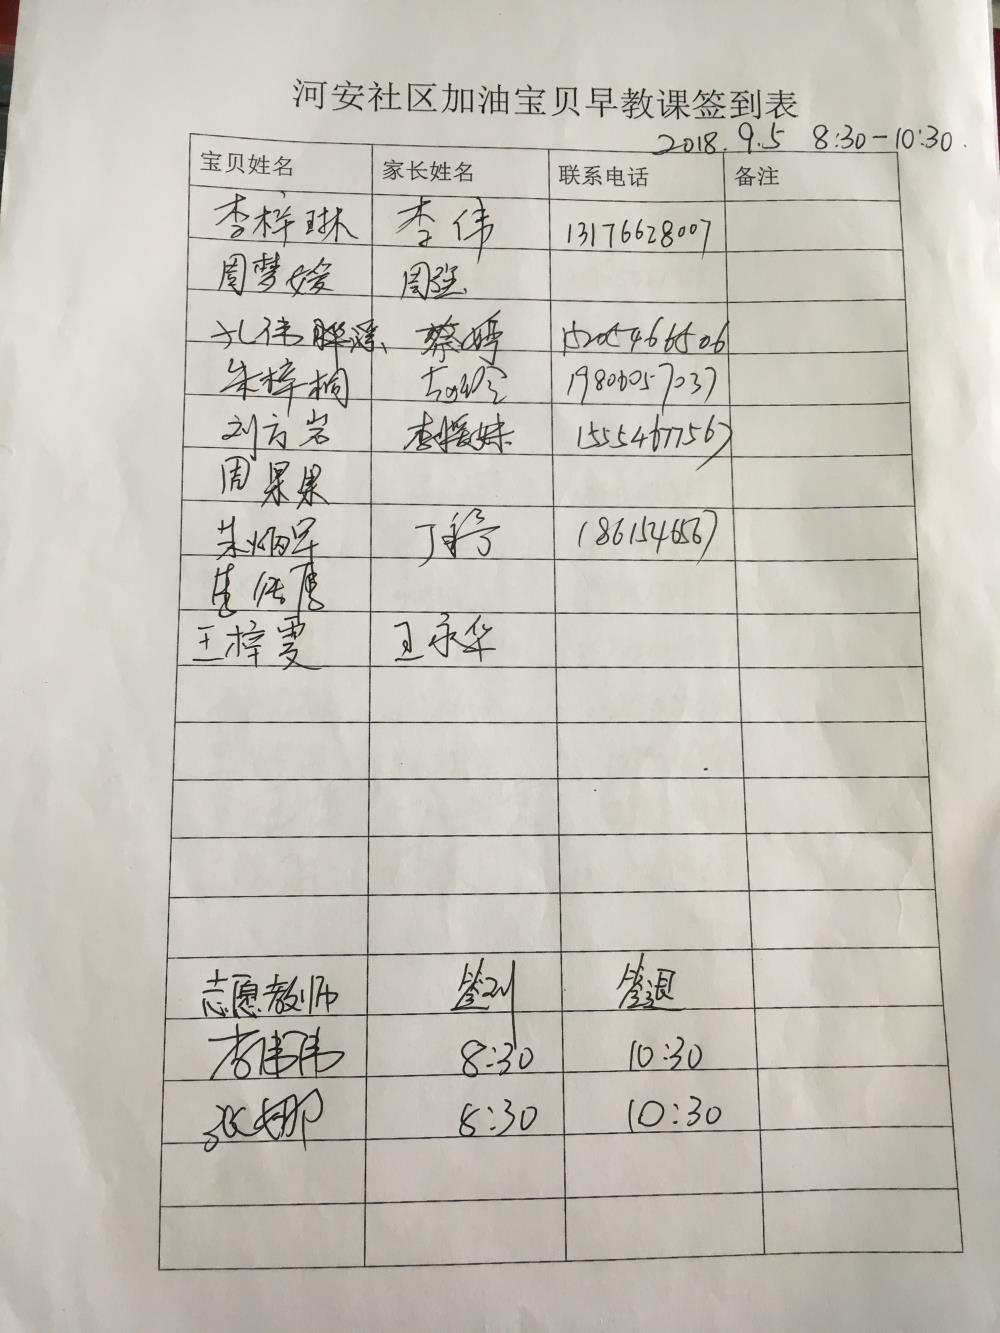 河安社区加油宝贝早教课签到表
2018.9.5 8:30-10:30.
宝贝姓名 家长姓名 联系电话 备注
李梓琳 李伟 13176628007
周梦媛 周强
蔡婷 15205466506
朱梓桐
刘方岩 15554677567
周果果
朱炳 丁
王梓雯 王永华
志愿教师 签到 签退
李伟伟 8:30 10:30
张娜 8:30 10:30